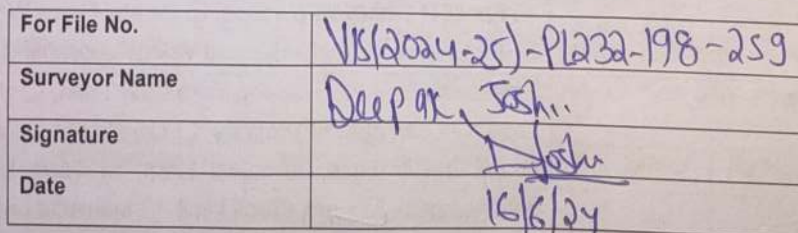 For File No. VIS(2024-25)-PL232-198-259
Surveyor Name Deepak Joshi
Signature DJoshi
Date 16/6/24